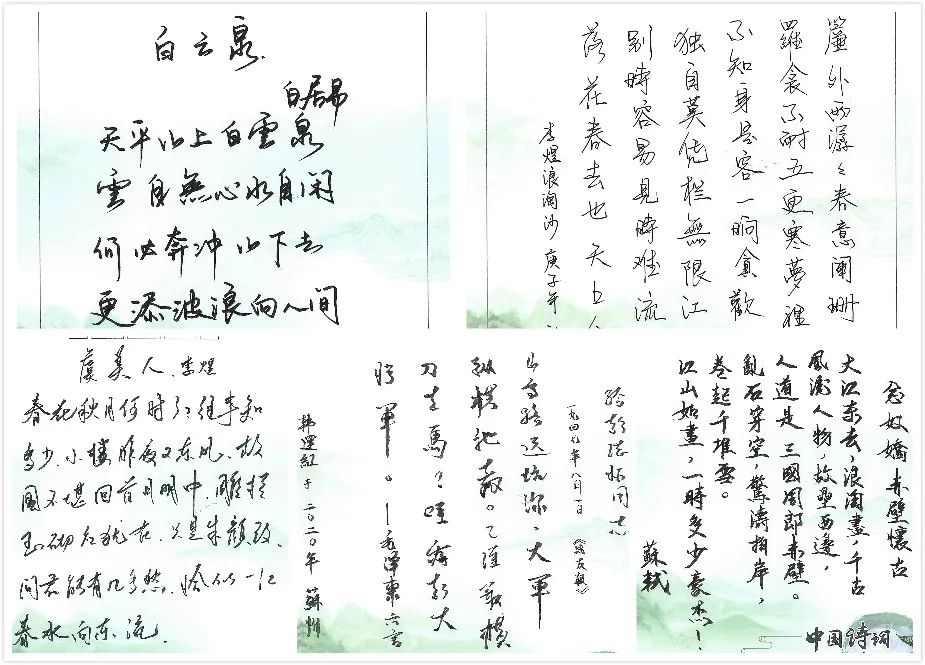 白云泉.
白居易
天平山上白雲泉
雲自無心水自闲
何必奔冲山下去
更添波浪向人间
簾外雨潺々春意阑珊
羅衾不耐五更寒夢裡
不知身是客一晌貪歡
独自莫凭栏無限江
别時容易見時难流
落花春去也天上
李煜浪淘沙 庚子年
虞美人.李煜
春花秋月何時了往事知
多少.小楼昨夜又东风,故
國不堪回首月明中,雕栏
玉砌应犹在,只是朱颜改.
问君能有几多愁,恰似一江
春水向东流.
念奴嬌赤壁懷古
大江东去,浪淘盡,千古
風流人物,故壘西邊,
人道是三國周郎赤壁。
亂石穿空,驚濤拍岸,
卷起千堆雪。
江山如畫,一時多少豪杰!
蘇軾
给彭德怀同志
年八月一日
山高路远坑深,大軍
纵横驰奔。谁敢横
刀立馬?唯我彭大
将軍。—毛澤東六言
于二〇二〇年 蘇州
中国诗词